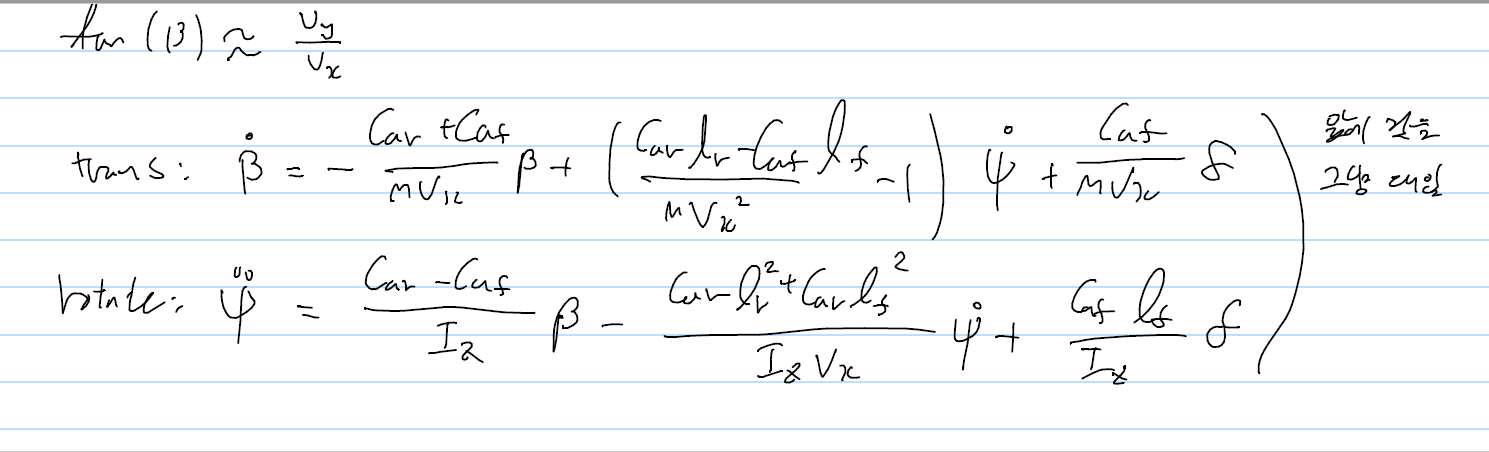 tan (β) ≈ Vy/Vx
trans: β̇ = - (Car + Caf)/(mVx) β + ((Car lr - Caf lf)/(mVx²) - 1) ψ̇ + Caf/(mVx) δ
rotate: ψ̈ = (Car - Caf)/Iz β - (Car lr² + Car lf²)/(Iz Vx) ψ̇ + (Caf lf)/Iz δ
앞에 것을
그냥 대입